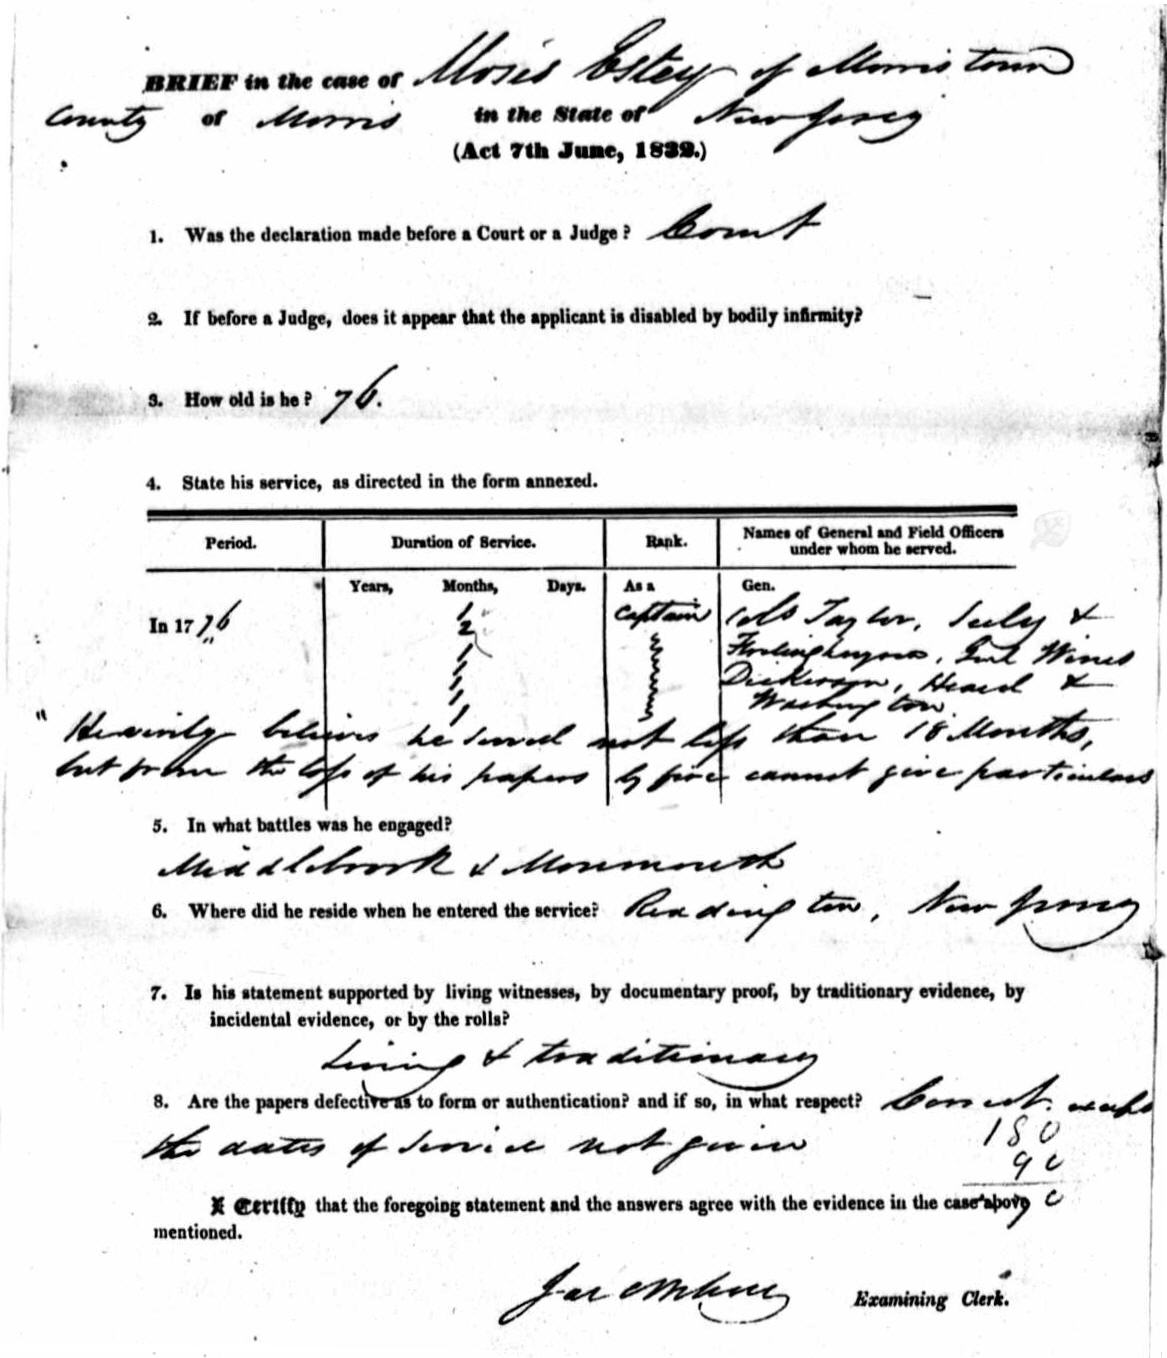 BRIEF in the case of Moses Estey of Morristown
County of Morris in the State of New Jersey
(Act 7th June, 1832.)
1. Was the declaration made before a Court or a Judge? Court
2. If before a Judge, does it appear that the applicant is disabled by bodily infirmity?
3. How old is he? 76.
4. State his service, as directed in the form annexed.
Period. Duration of Service. Rank. Names of General and Field Officers
under whom he served.
Years, Months, Days. As a Gen.
In 1776 1 Captain Cols Taylor, Seely &
2 Frelinghuysen, Wines
1 Dickerson, Heard &
1 Washington
1
1
" He verily believes he served not less than 18 Months,
but from the loss of his papers by fire cannot give particulars
5. In what battles was he engaged?
Middlebrook & Monmouth
6. Where did he reside when he entered the service? Readington, New Jersey
7. Is his statement supported by living witnesses, by documentary proof, by traditionary evidence, by
incidental evidence, or by the rolls?
Living & traditionary
8. Are the papers defective as to form or authentication? and if so, in what respect? Correct. except
the dates of service not given
180
90
I Certify that the foregoing statement and the answers agree with the evidence in the case above
mentioned.
Examining Clerk.